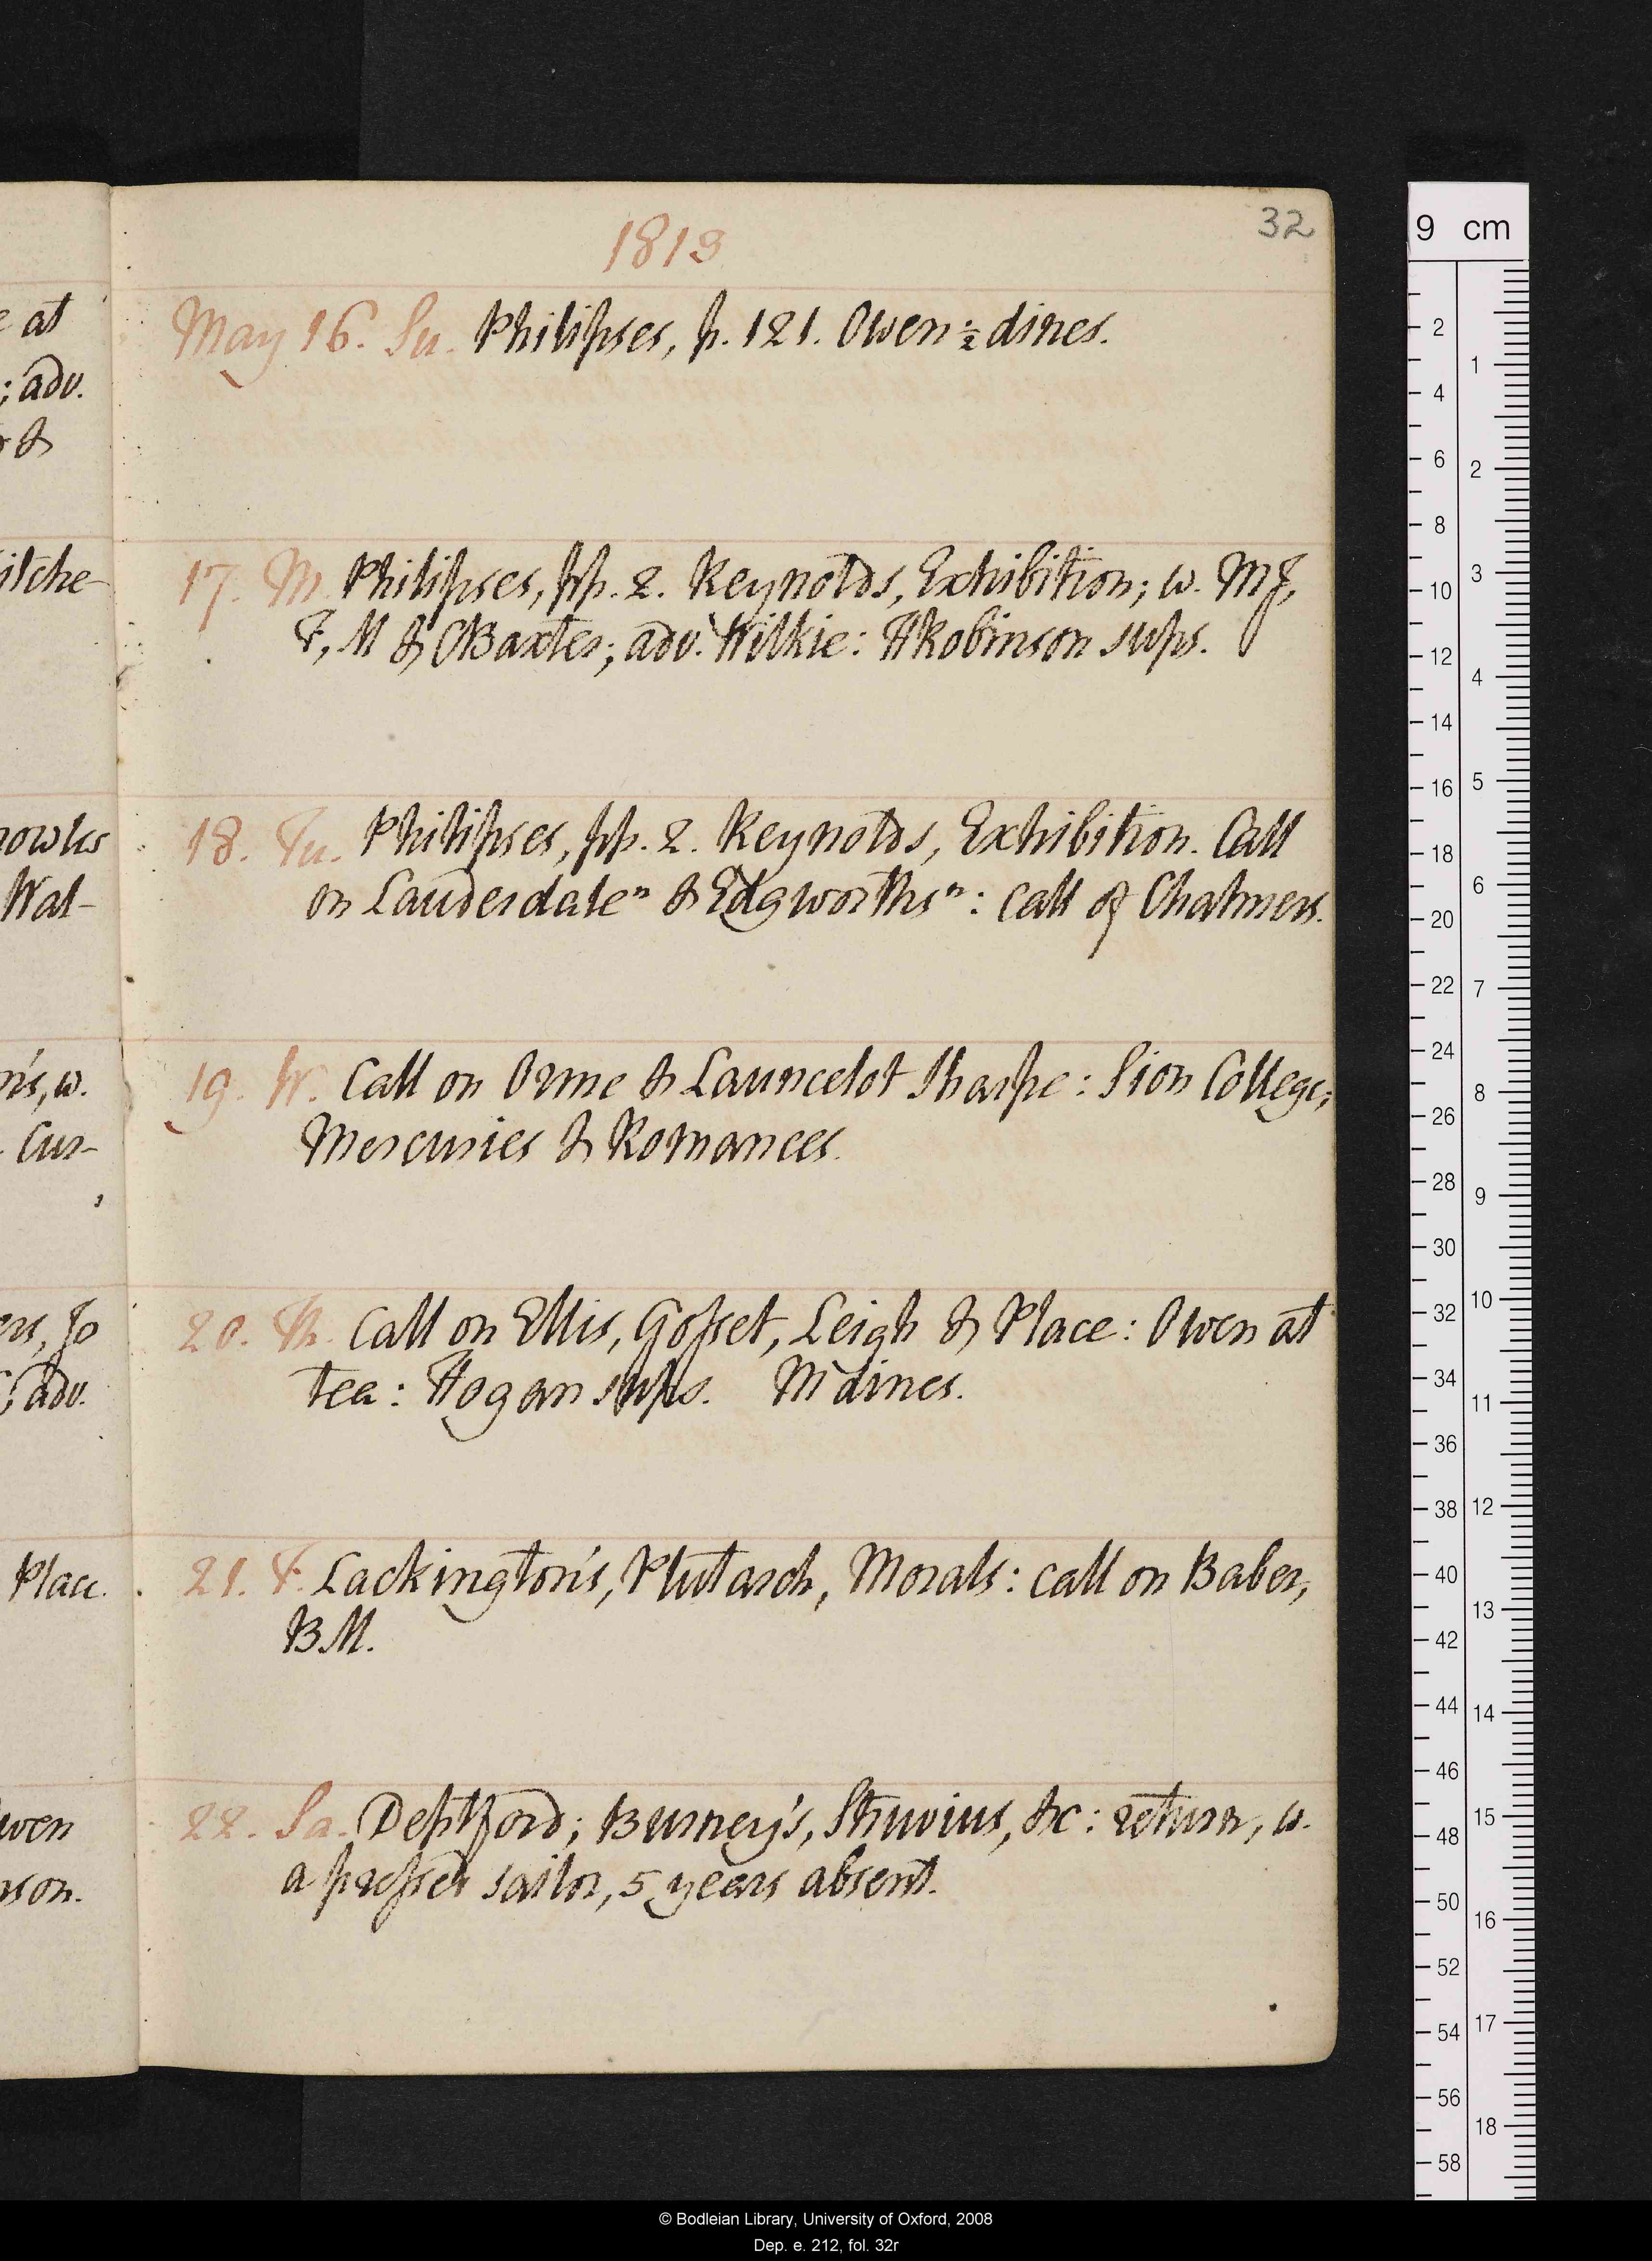 1813
32
May 16. Su. Philipses, p. 121. Owen ½ dines.
17. M. Philipses, pp. 2. Reynolds, Exhibition; w. MJ,
F, M & CBaxter; adv. Wilkie: HRobinson sups.
18. Tu. Philipses, pp. 2. Reynolds, Exhibition. Call
on Lauderdale ⁿ & Edgworths ⁿ: call of Chalmers.
19. W. Call on Orme & Launcelot Sharpe: Sion College;
Mercuries & Romances.
20. Th. Call on Ellis, Gosset, Leigh & Place: Owen at
tea: Hogan sups. M dines.
21. F. Lackington's, Plutarch, Morals: call on Baber,
BM.
22. Sa. Deptford; Burney's, Struvius, &c: return, w.
a pressed sailor, 5 years absent.
e at
; adv.
r &
itche-
nowles
Wal-
n's, w.
Cur-
ers, Jo
; adv.
Place.
wen
nson.
9 cm
2
4
6
8
10
12
14
16
18
20
22
24
26
28
30
32
34
36
38
40
42
44
46
48
50
52
54
56
58
1
2
3
4
5
6
7
8
9
10
11
12
13
14
15
16
17
18
© Bodleian Library, University of Oxford, 2008
Dep. e. 212, fol. 32r